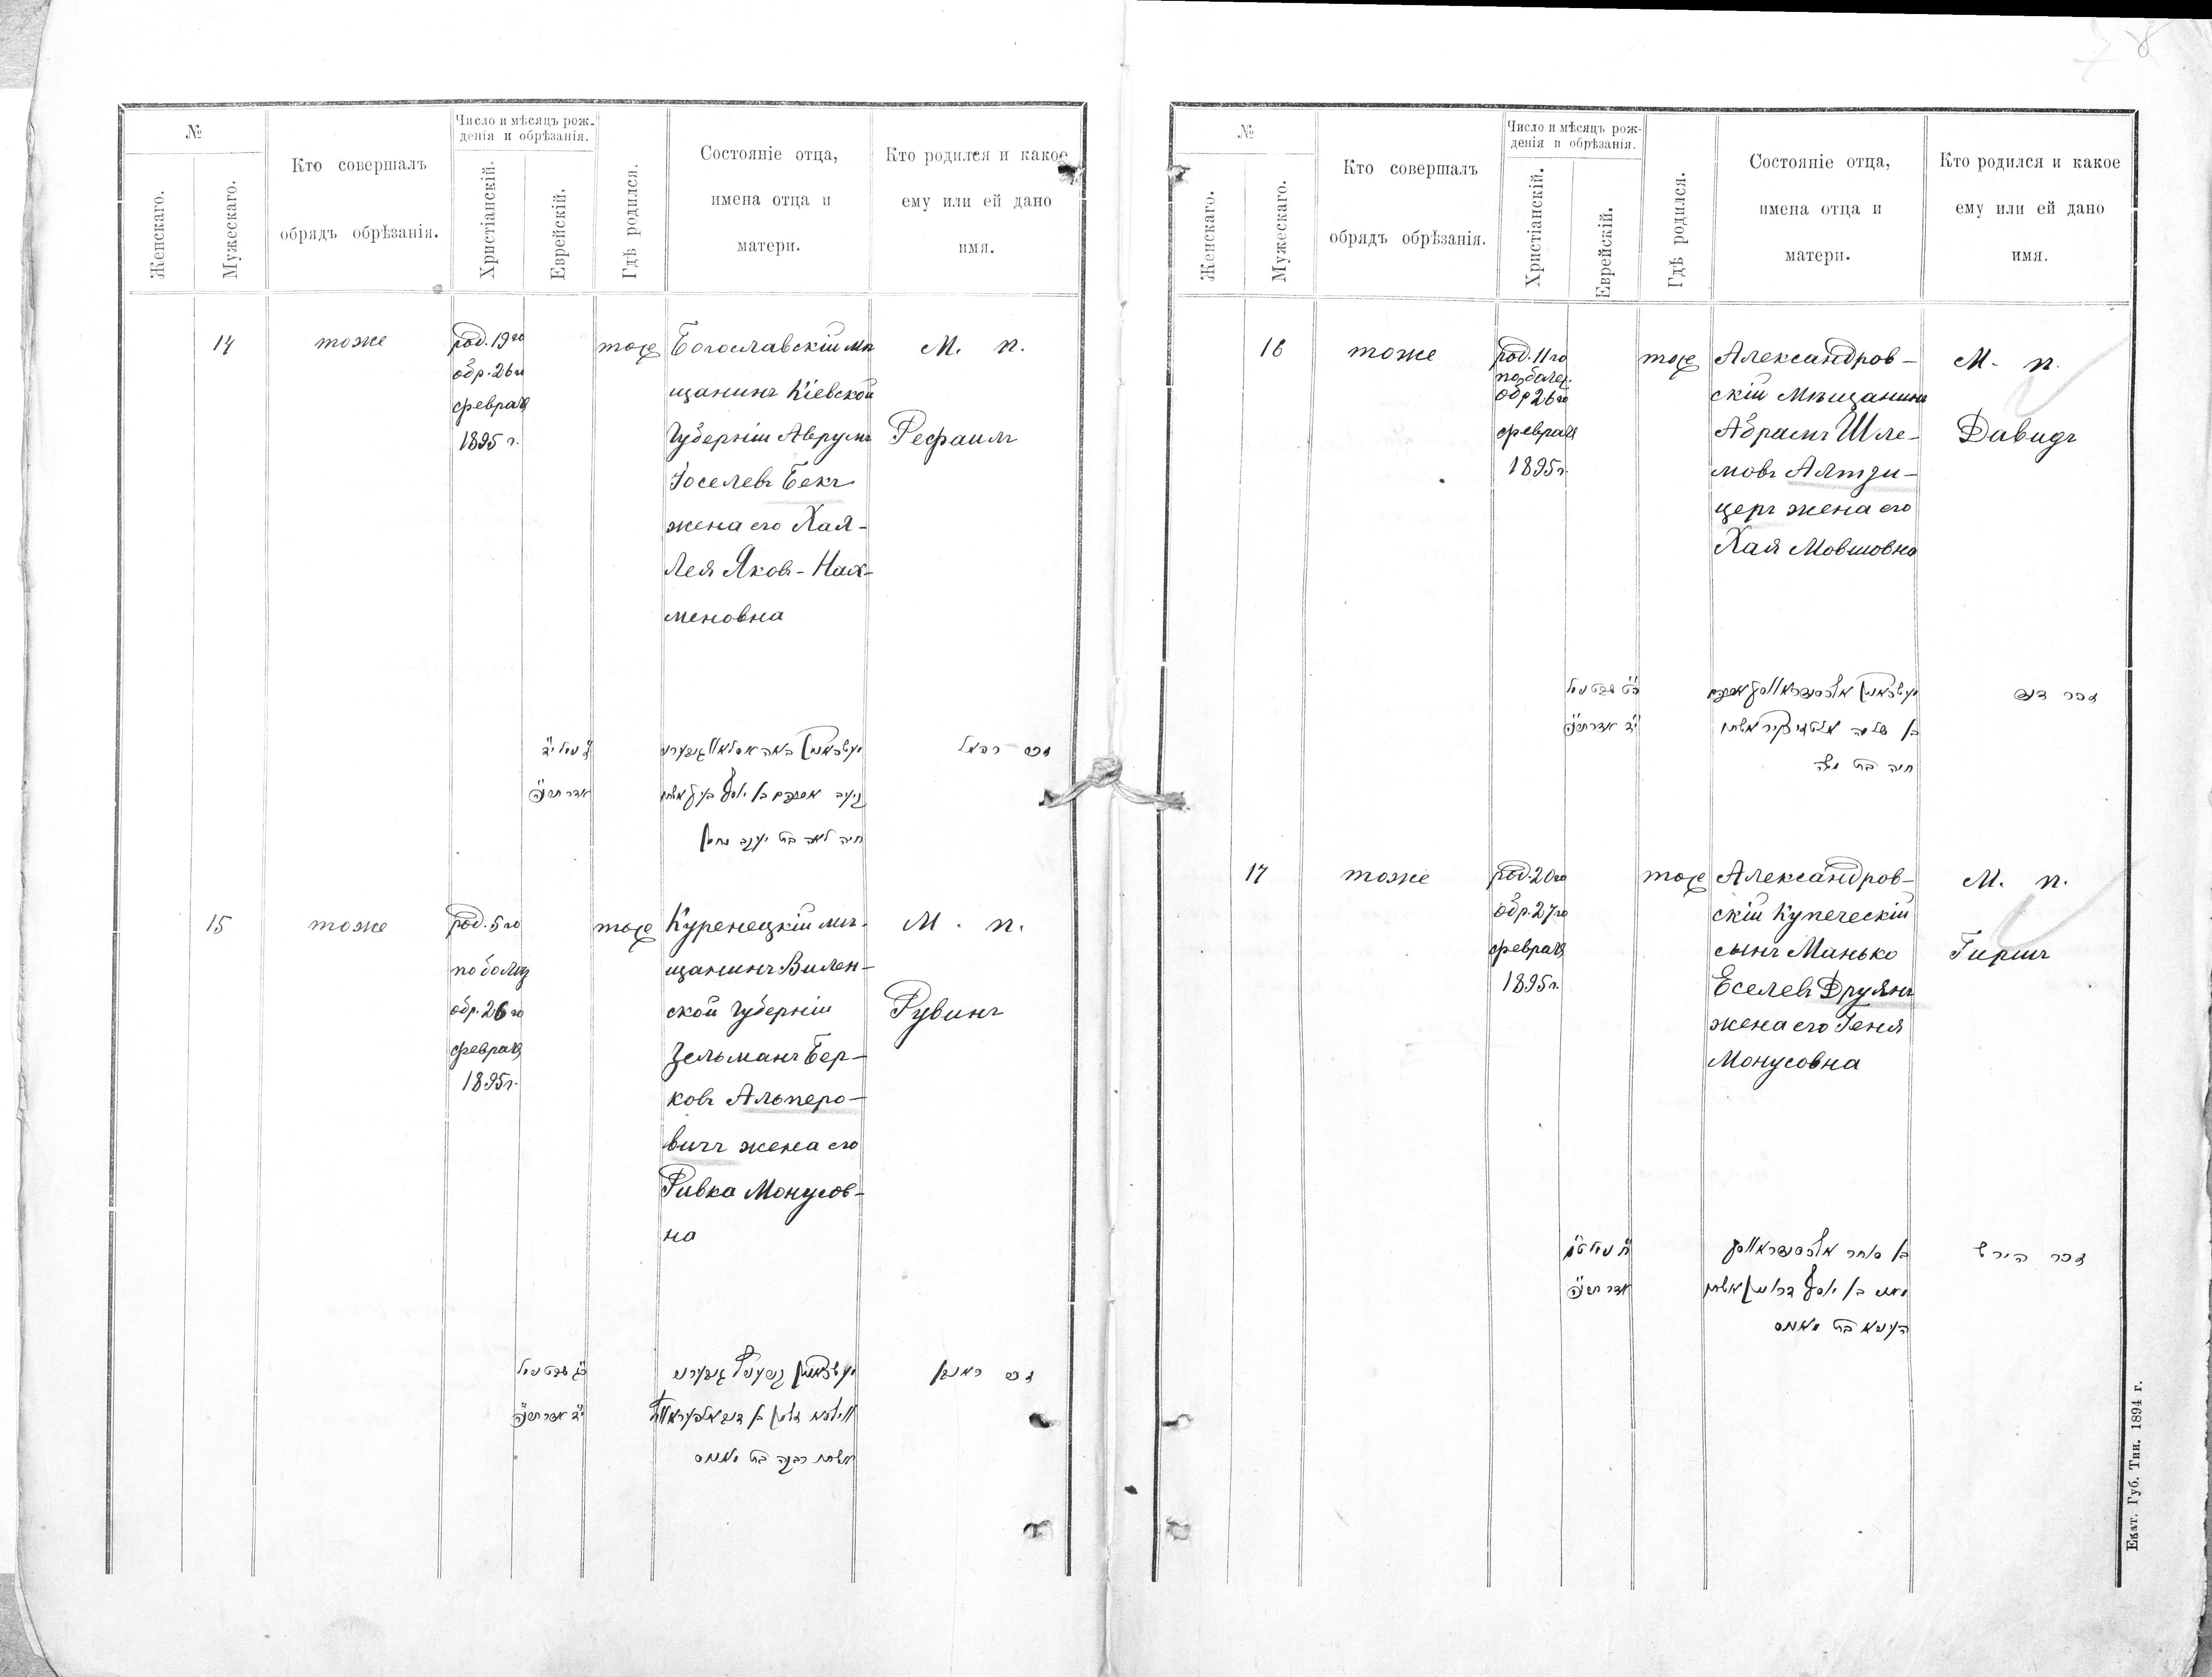 №
Женскаго.
Мужескаго.
Кто совершалъ
обрядъ обрѣзанія.
Число и мѣсяцъ рож-
денія и обрѣзанія.
Христіанскій.
Еврейскій.
Гдѣ родился.
Состояніе отца,
имена отца и
матери.
Кто родился и какое
ему или ей дано
имя.
14
тоже
род. 19го
обр. 26го
февраля
1895 г.
тоже
Богославскій мѣ
щанинъ Кіевской
Губерніи Аврумъ
Іоселевъ Бекъ
жена его Хая-
Лея Яков-Нах-
меновна
М. п.
Рефаилъ
אדר תרנ״ה
חיה לאה בת יעקב נחמן
15
тоже
род. 5го
по болѣз
обр. 26го
февраля
1895 г.
тоже
Куренецкій мѣ-
щанинъ Вилен-
ской Губерніи
Зельманъ Бер-
ковъ Альперо-
вичъ жена его
Ривка Монусов-
на
М. п.
Рувинъ
זכר ראובן
№
Женскаго.
Мужескаго.
Кто совершалъ
обрядъ обрѣзанія.
Число и мѣсяцъ рож-
денія и обрѣзанія.
Христіанскій.
Еврейскій.
Гдѣ родился.
Состояніе отца,
имена отца и
матери.
Кто родился и какое
ему или ей дано
имя.
16
тоже
род. 11го
по болез.
обр 26го
февраля
1895 г.
тоже
Александров-
скій Мѣщанинъ
Абрамъ Шле-
мовъ Алтзи-
церъ жена его
Хая Мовшовна
М. п.
Давидъ
זכר דוד
חיה בת משה
17
тоже
род. 20го
обр. 27го
февраля
1895 г.
тоже
Александров-
скій Купеческій
сынъ Манько
Еселевъ Друянъ
жена его Геня
Монусовна
М. п.
Гиршъ
זכר הירש
אדר תרנ״ה
Екат. Губ. Тип. 1894 г.